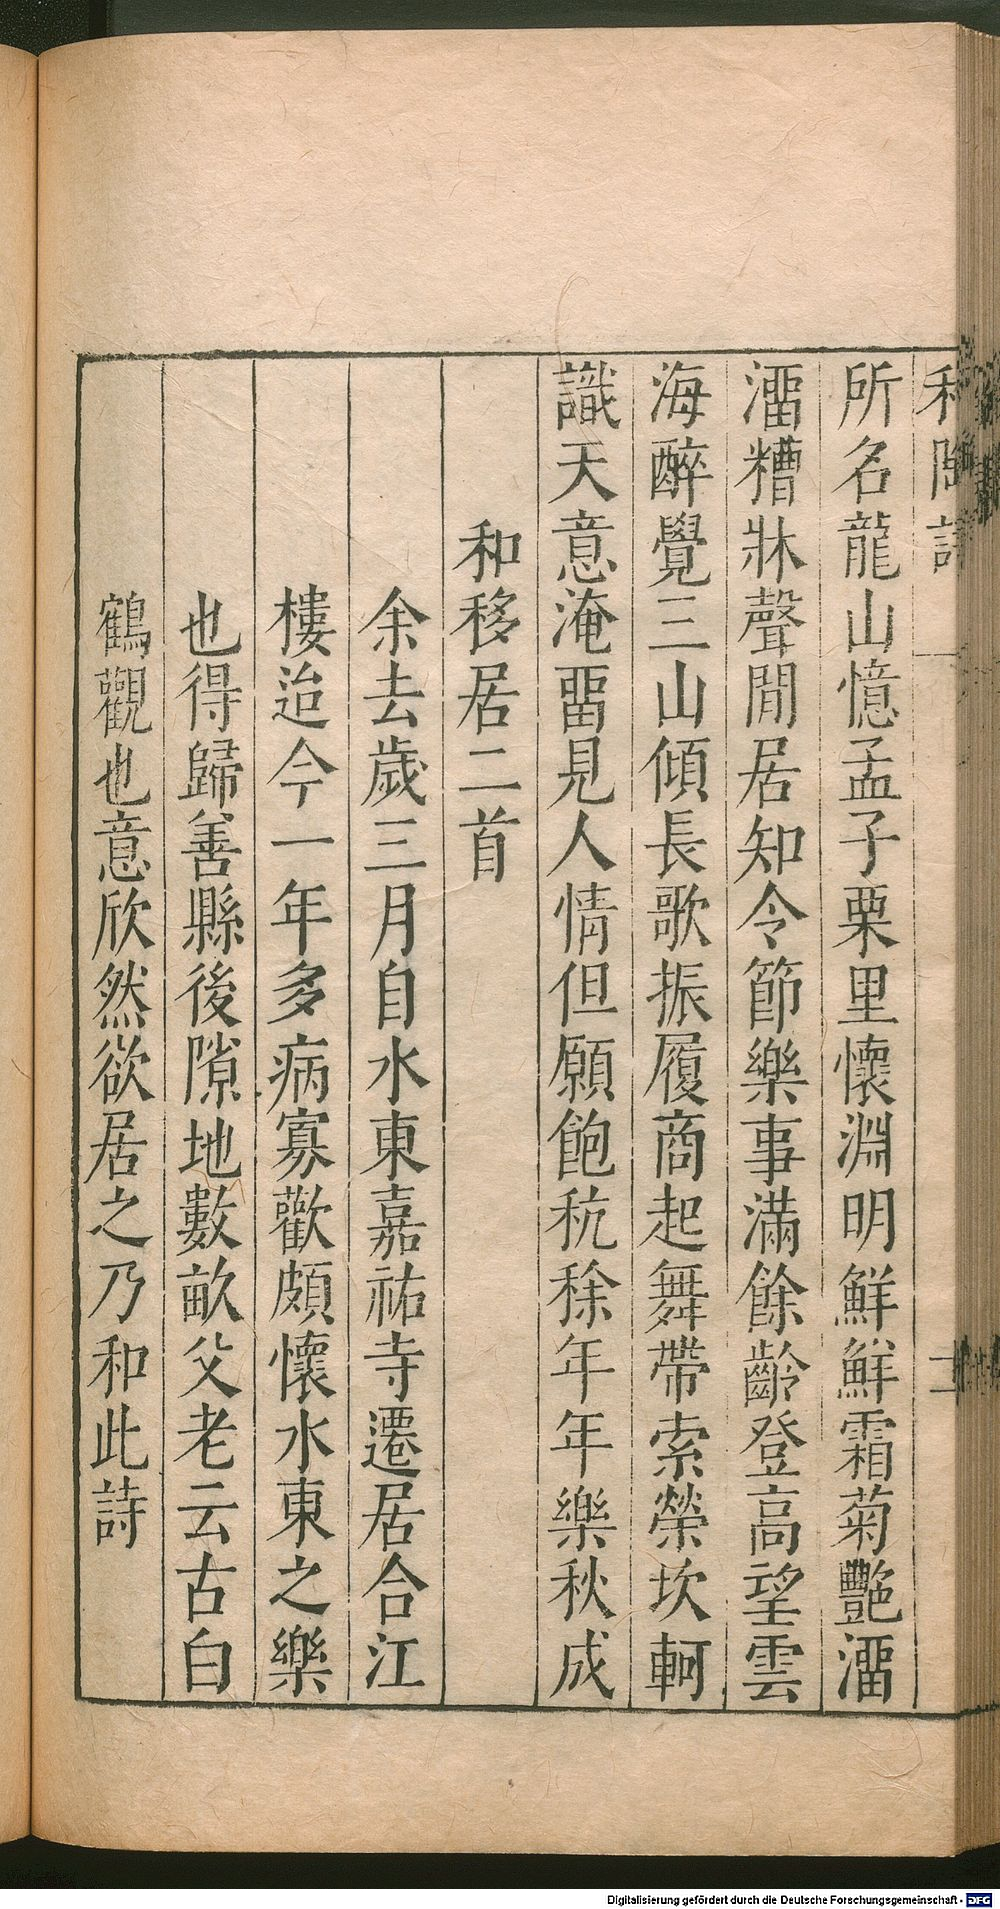 和陶詩
所名龍山憶孟子栗里懷淵明鮮鮮霜菊艷溜
溜糟牀聲閒居知令節樂事滿餘齡登高望雲
海醉覺三山傾長歌振履商起舞帶索榮坎軻
識天意淹畱見人情但願飽秔稌年年樂秋成
和移居二首
余去歲三月自水東嘉祐寺遷居合江
樓迨今一年多病寡歡頗懷水東之樂
也得歸善縣後隙地數畝父老云古白
鶴觀也意欣然欲居之乃和此詩
Digitalisierung gefördert durch die Deutsche Forschungsgemeinschaft - DFG